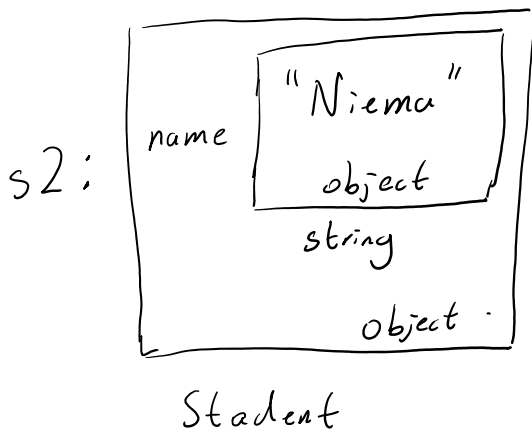 s2:
name
"Niema"
object
string
object
Student